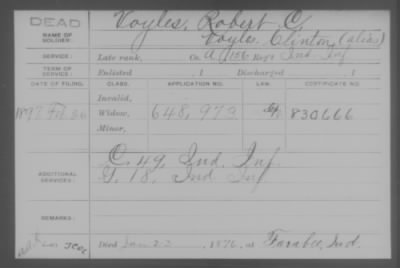 DEAD
Voyles, Robert C.
NAME OF SOLDIER:
Voyles, Clinton (alias)
SERVICE:
Late rank, Co. A, 156 Reg't Ind Inf
TERM OF SERVICE:
Enlisted , 1 Discharged , 1
DATE OF FILING. CLASS. APPLICATION NO. LAW. CERTIFICATE NO.
Invalid,
1897 Feb 26 Widow, 648,973 830666
Minor,
ADDITIONAL SERVICES:
C. 49, Ind. Inf.
18, Ind Inf
REMARKS:
Died Jan 23, 1896, at Farabee, Ind.